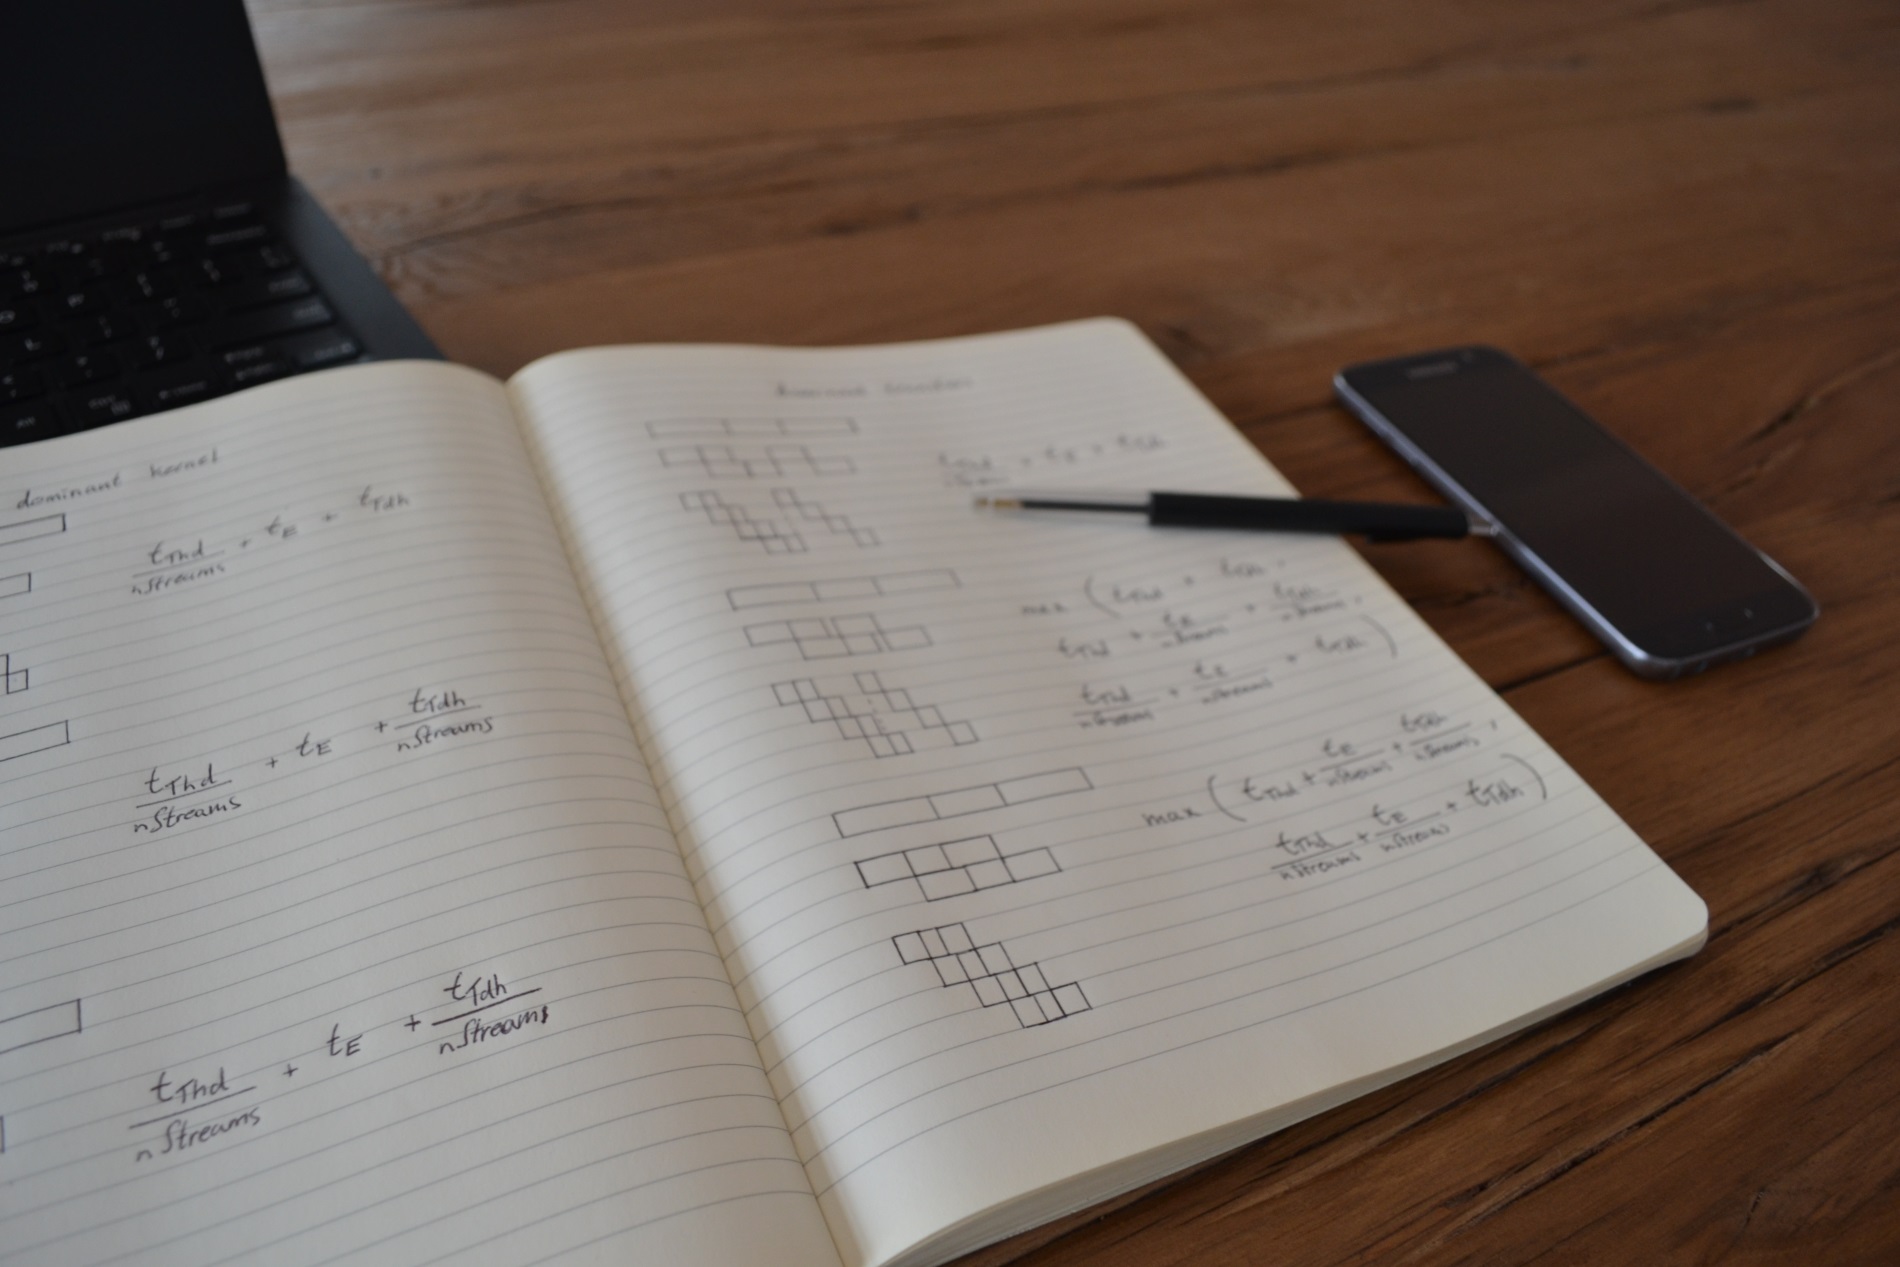 dominant kernel
tThd/nStreams + tE + tTdh
tThd/nStreams + tE + tTdh/nStreams
tThd/nStreams + tE + tTdh/nStreams
dominant transfers
max ( tThd + tTdh,
tThd + tE/nStreams + tTdh/nStreams,
tThd/nStreams + tE/nStreams + tTdh )
max ( tThd + tE/nStreams + tTdh/nStreams,
tThd/nStreams + tE/nStreams + tTdh )